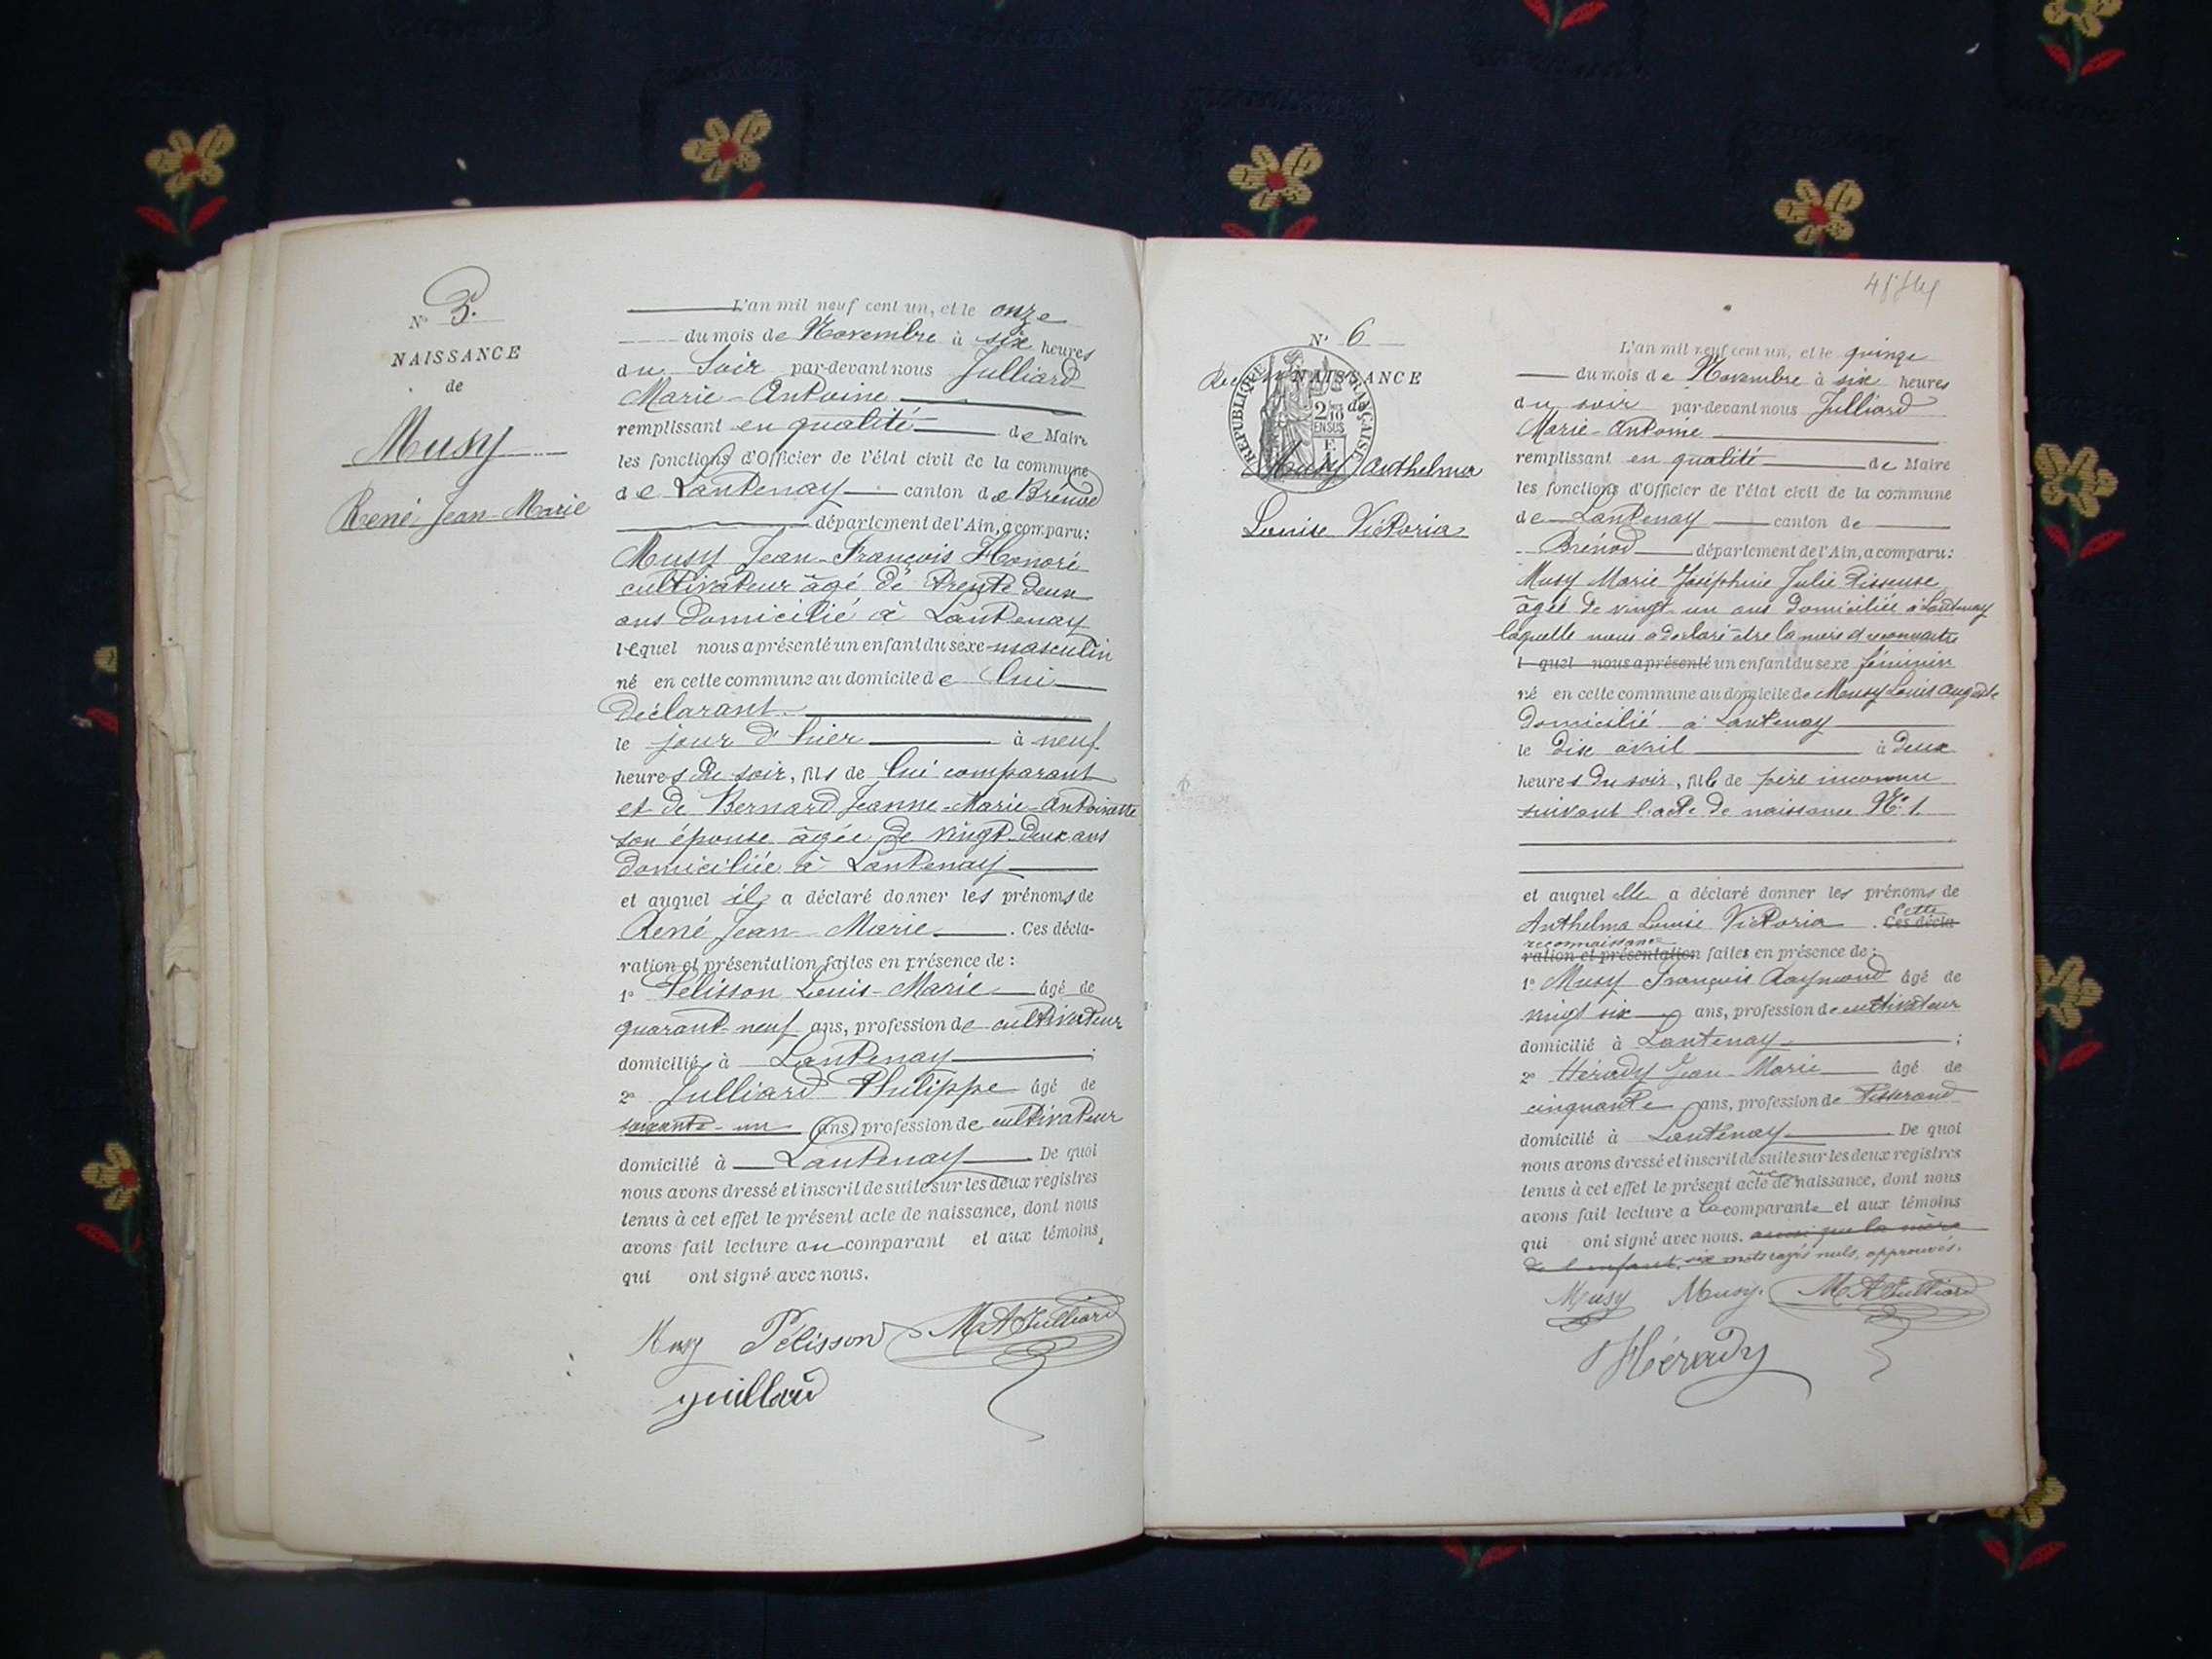 N° 5.
NAISSANCE
de
Musy
René Jean-Marie
L'an mil neuf cent un, et le onze
du mois de Novembre à six heures
du Soir par-devant nous Julliard
Marie-Antoine
remplissant en qualité de Maire
les fonctions d'Officier de l'état civil de la commune
de Lantenay canton de Brénod
département de l'Ain, a comparu:
Musy Jean-François Honoré
cultivateur âgé de trente deux
ans domicilié à Lantenay
lequel nous a présenté un enfant du sexe masculin
né en cette commune au domicile de lui
déclarant
le jour d'hier à neuf
heures du soir, fils de lui comparant
et de Bernard Jeanne-Marie-Antoinette
son épouse âgée de vingt-deux ans
domiciliée à Lantenay
et auquel il a déclaré donner les prénoms de
René Jean-Marie. Ces décla-
ration et présentation faites en présence de:
1° Pélisson Louis-Marie âgé de
quarant-neuf ans, profession de cultivateur
domicilié à Lantenay;
2° Julliard Philippe âgé de
soixante-un ans, profession de cultivateur
domicilié à Lantenay De quoi
nous avons dressé et inscrit de suite sur les deux registres
tenus à cet effet le présent acte de naissance, dont nous
avons fait lecture au comparant et aux témoins,
qui ont signé avec nous.
Musy Pélisson MAJulliard
juillard
N° 6
NAISSANCE
de
RÉPUBLIQUE FRANÇAISE
2/10 EN SUS
Musy Anthelma
Louise Victoria
L'an mil neuf cent un, et le quinze
du mois de Novembre à six heures
du soir par-devant nous Julliard
Marie-Antoine
remplissant en qualité de Maire
les fonctions d'Officier de l'état civil de la commune
de Lantenay canton de
Brénod département de l'Ain, a comparu:
Musy Marie Joséphine Julie Tisseuse
âgée de vingt-un ans domiciliée à Lantenay
laquelle nous a déclaré être la mère et reconnaitre
l quel nous a présenté un enfant du sexe féminin
né en cette commune au domicile de Musy Louis Auguste
domicilié à Lantenay
le dix avril à deux
heures du soir, fille de père inconnu
suivant l'acte de naissance N° 1.
et auquel elle a déclaré donner les prénoms de
Anthelma Louise Victoria. Cette Ces décla-
reconnaissance
ration et présentation faites en présence de:
1° Musy François Raymond âgé de
vingt six ans, profession de cultivateur
domicilié à Lantenay;
2° Hérady Jean-Marie âgé de
cinquante ans, profession de Tisserand
domicilié à Lantenay De quoi
nous avons dressé et inscrit de suite sur les deux registres
tenus à cet effet le présent acte de naissance, dont nous
avons fait lecture a la comparante et aux témoins
qui ont signé avec nous. ainsi que la mère
de l'enfant. six mots rayés nuls, approuvés.
Musy Musy. MAJulliard
Hérady